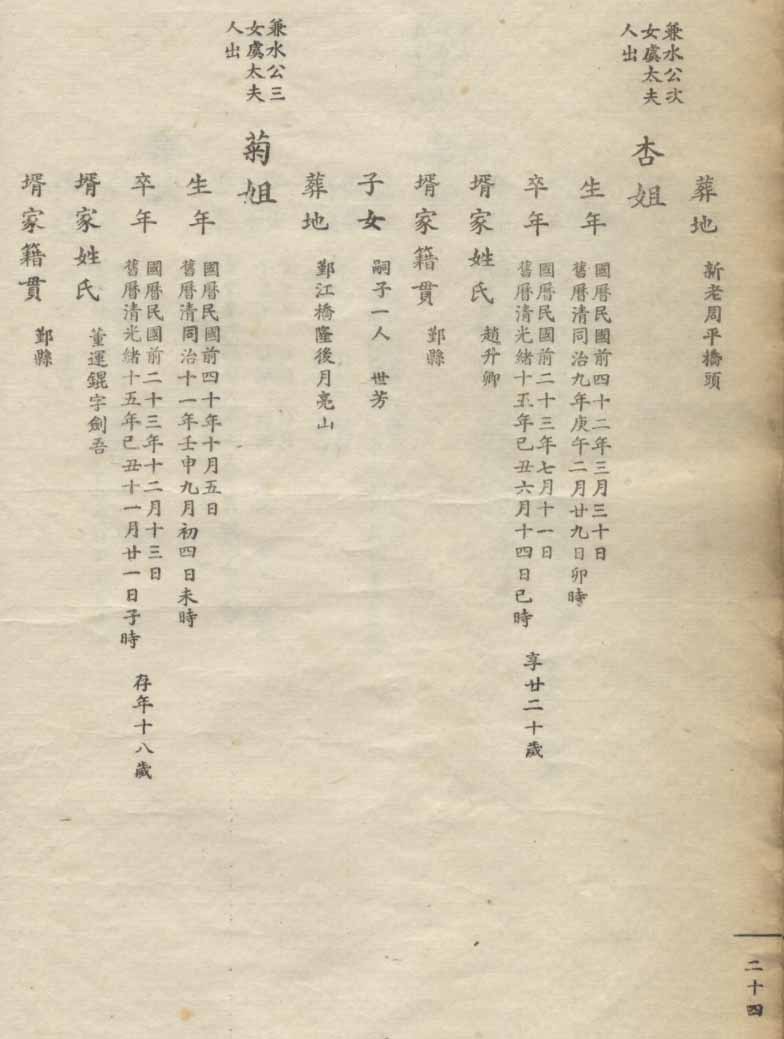 葬地 新老周平橋頭
兼水公次
女虞太夫
人出
杏姐
生年
國曆民國前四十二年三月三十日
舊曆清同治九年庚午二月廿九日卯時
卒年
國曆民國前二十三年七月十一日
舊曆清光緒十五年己丑六月十四日巳時
享廿二十歲
壻家姓氏 趙升卿
壻家籍貫 鄞縣
子女 嗣子一人 世芳
葬地 鄞江橋隆後月亮山
兼水公三
女虞太夫
人出
菊姐
生年
國曆民國前四十年十月五日
舊曆清同治十一年壬申九月初四日未時
卒年
國曆民國前二十三年十二月十三日
舊曆清光緒十五年己丑十一月廿一日子時
存年十八歲
壻家姓氏 董運錕字劍吾
壻家籍貫 鄞縣
二十四